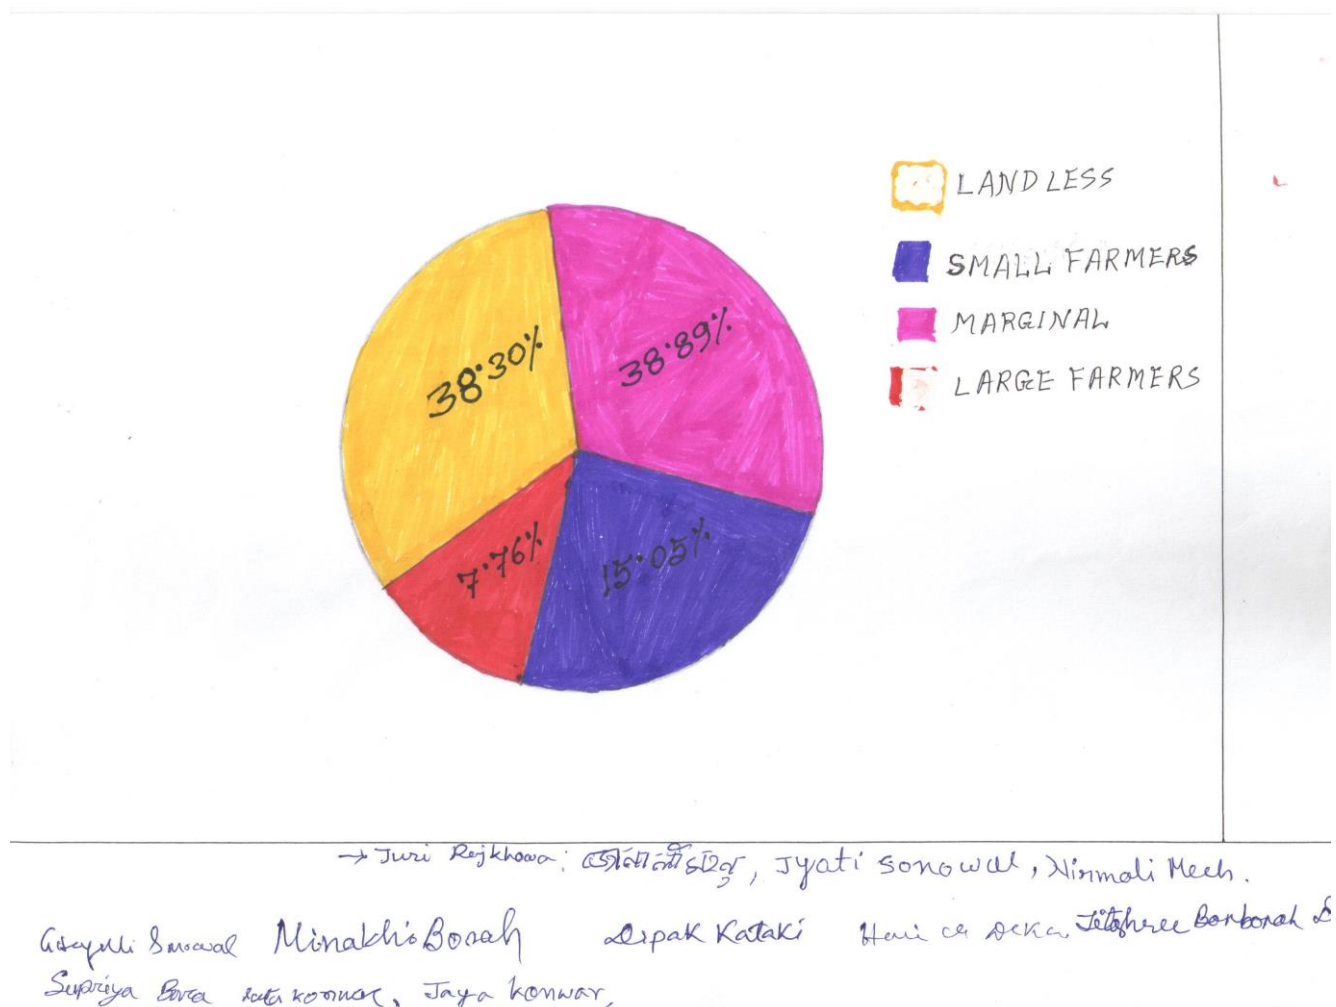 LANDLESS
SMALL FARMERS
MARGINAL
LARGE FARMERS
38.30%
38.89%
7.76%
15.05%
→ Juri Rajkhowa; Jyati sonowal, Nirmali Mech.
Minakhi Borah Dipak Kataki Deka Borborah
Supriya Bora Jaya Konwar,